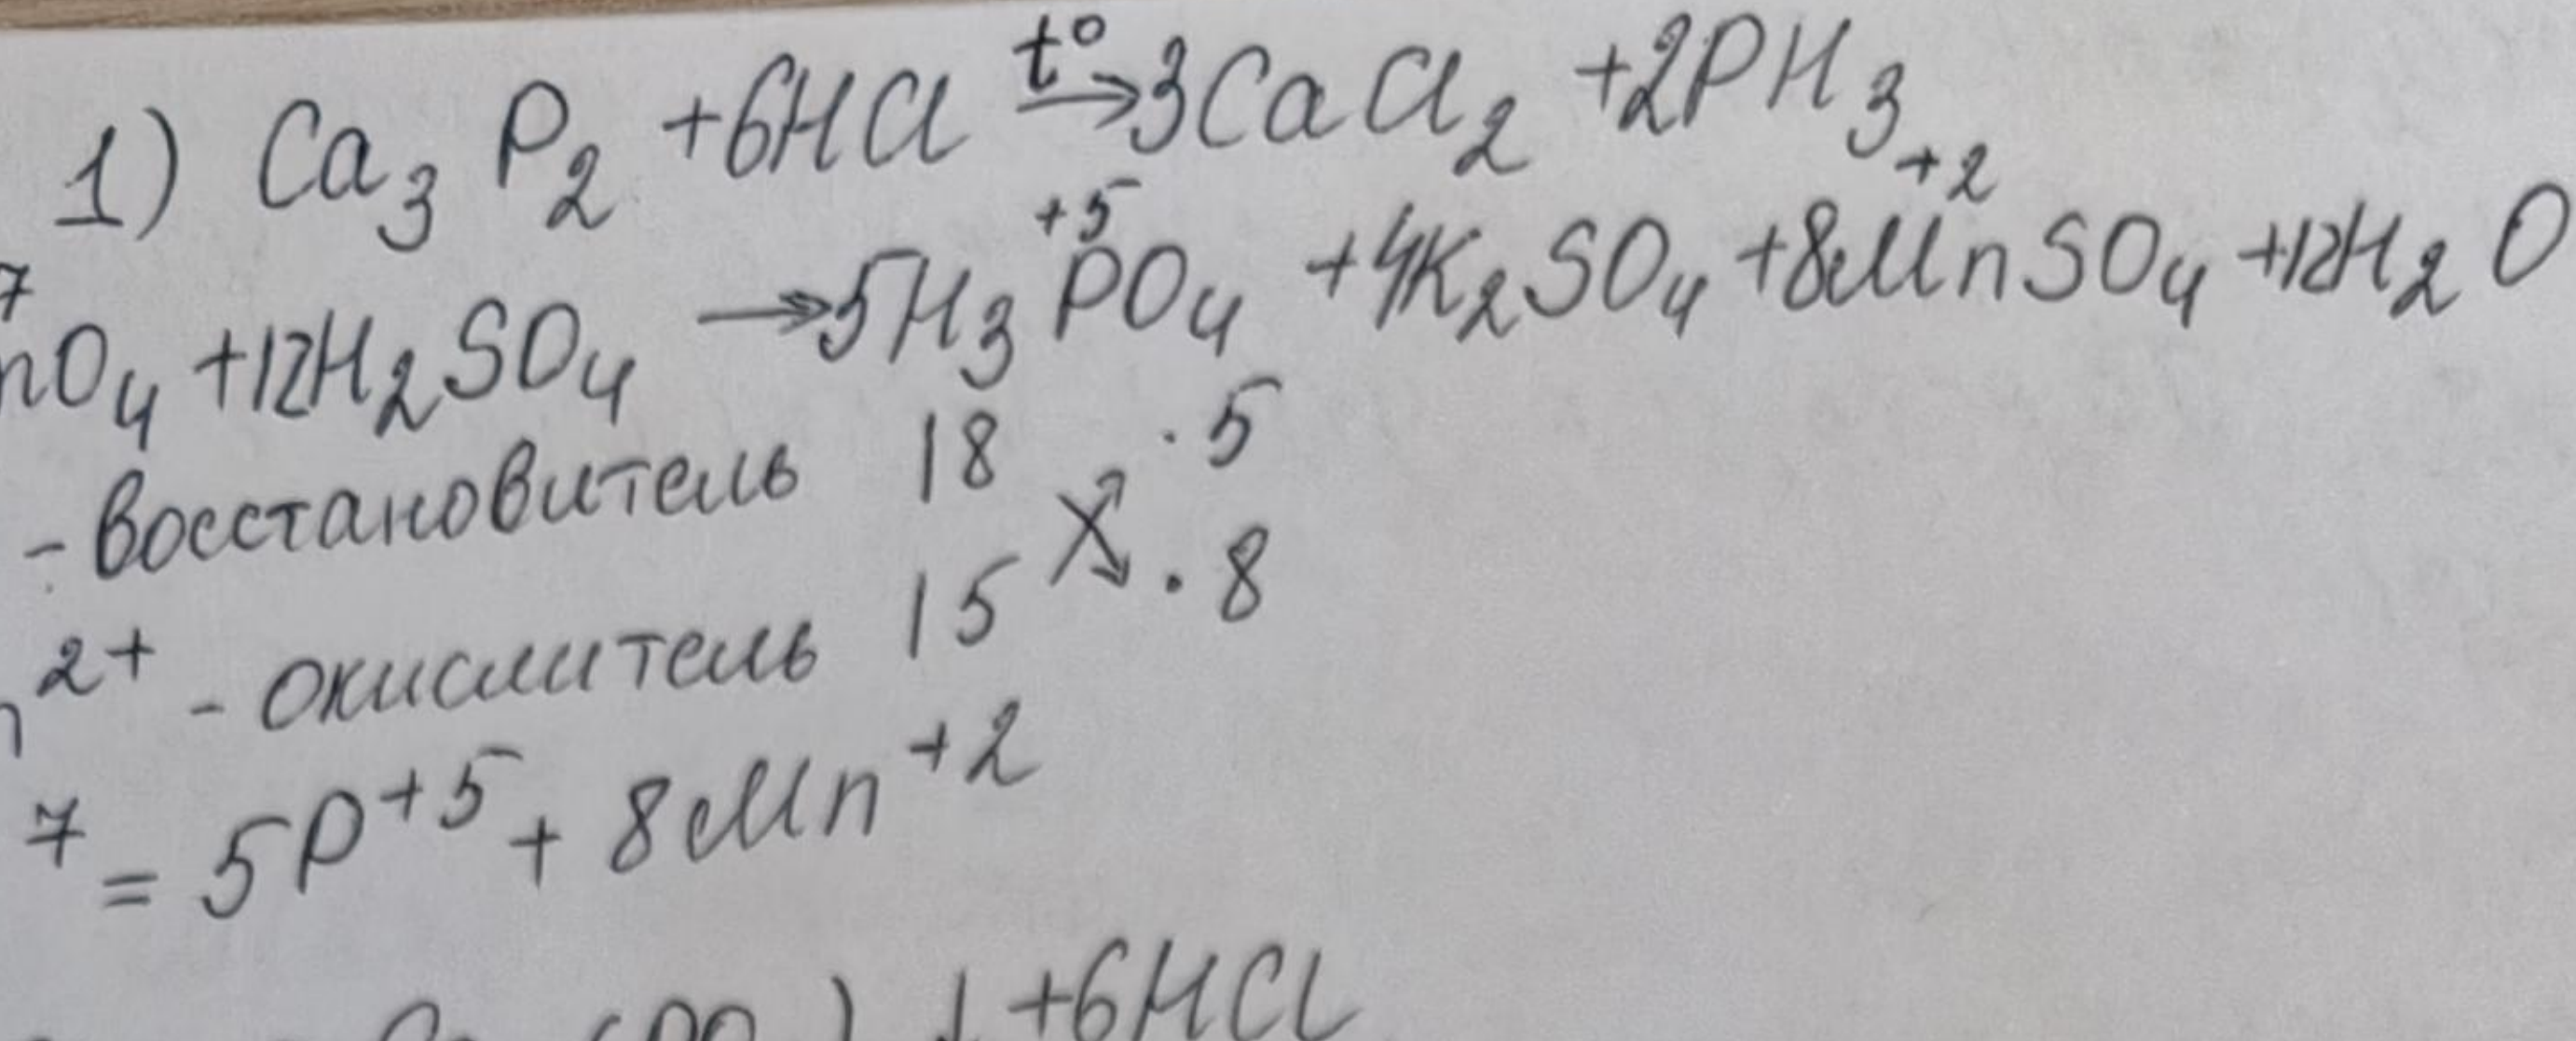 1) Ca₃P₂ + 6HCl t° → 3CaCl₂ + 2PH₃
7 +5 +2
nO₄ + 12H₂SO₄ → 5H₃PO₄ + 4K₂SO₄ + 8MnSO₄ + 12H₂O
- восстановитель | 8 · 5
n²⁺ - окислитель | 5 · 8
7 = 5P⁺⁵ + 8Mn⁺²
↓ + 6HCl